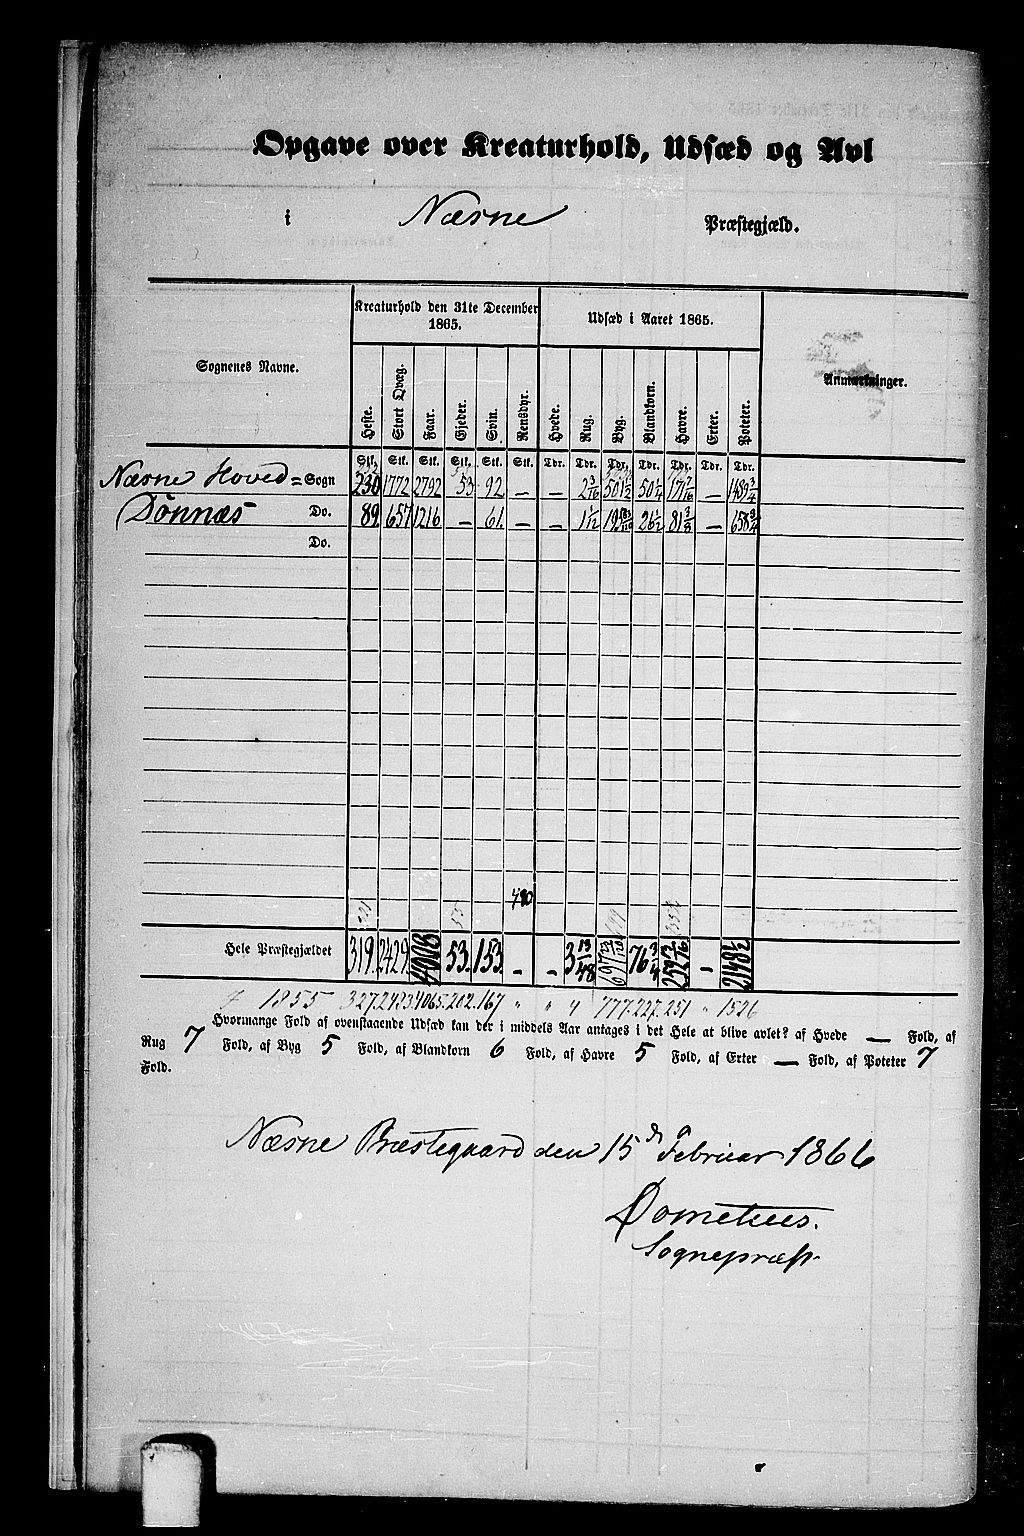 Opgave over Kreaturhold, Udsæd og Avl
i Næsne Præstegjæld.
Sognenes Navne. Kreaturhold den 31te December 1865. Udsæd i Aaret 1865. Anmærkninger.
Heste. Stort Qvæg. Faar. Gjeder. Svin. Rensdyr. Hvede. Rug. Byg. Blandkorn. Havre. Erter. Poteter.
Stk. Stk. Stk. Stk. Stk. Stk. Tdr. Tdr. Tdr. Tdr. Tdr. Tdr. Tdr.
Næsne Hoved = Sogn 230 1772 2792 53 92 — — 2 3/16 501 1/2 50 1/4 171 7/16 — 1489 3/4
Dönnæs Do. 89 657 1216 — 61 — — 1 1/12 26 1/2 81 3/8 — 658 3/4
Do.
490
Hele Præstegjældet 319. 2429. 4008 53. 153. — — 3 13/48 76 3/4 — 2148 1/2
1855 327. 2423. 4065. 202. 167 " " 4 777. 227. 251 " 1526
Hvormange Fold af ovenstaaende Udsæd kan der i middels Aar antages i det Hele at blive avlet? af Hvede — Fold, af
Rug 7 Fold, af Byg 5 Fold, af Blandkorn 6 Fold, af Havre 5 Fold, af Erter — Fold, af Poteter 7
Fold.
Næsne Præstegaard den 15de Februar 1866
Dometius.
Sognepræst